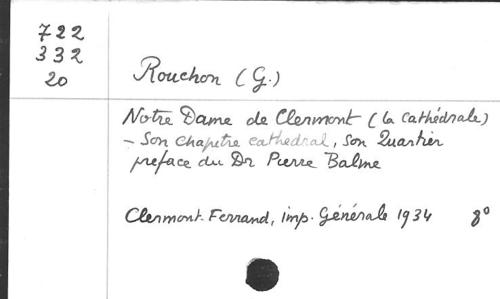 722
332
20
Rouchon (G.)
Notre Dame de Clermont (la cathédrale)
- Son chapitre cathedral, son Quartier
preface du Dr Pierre Balme
Clermont-Ferrand, imp. Générale 1934 8°